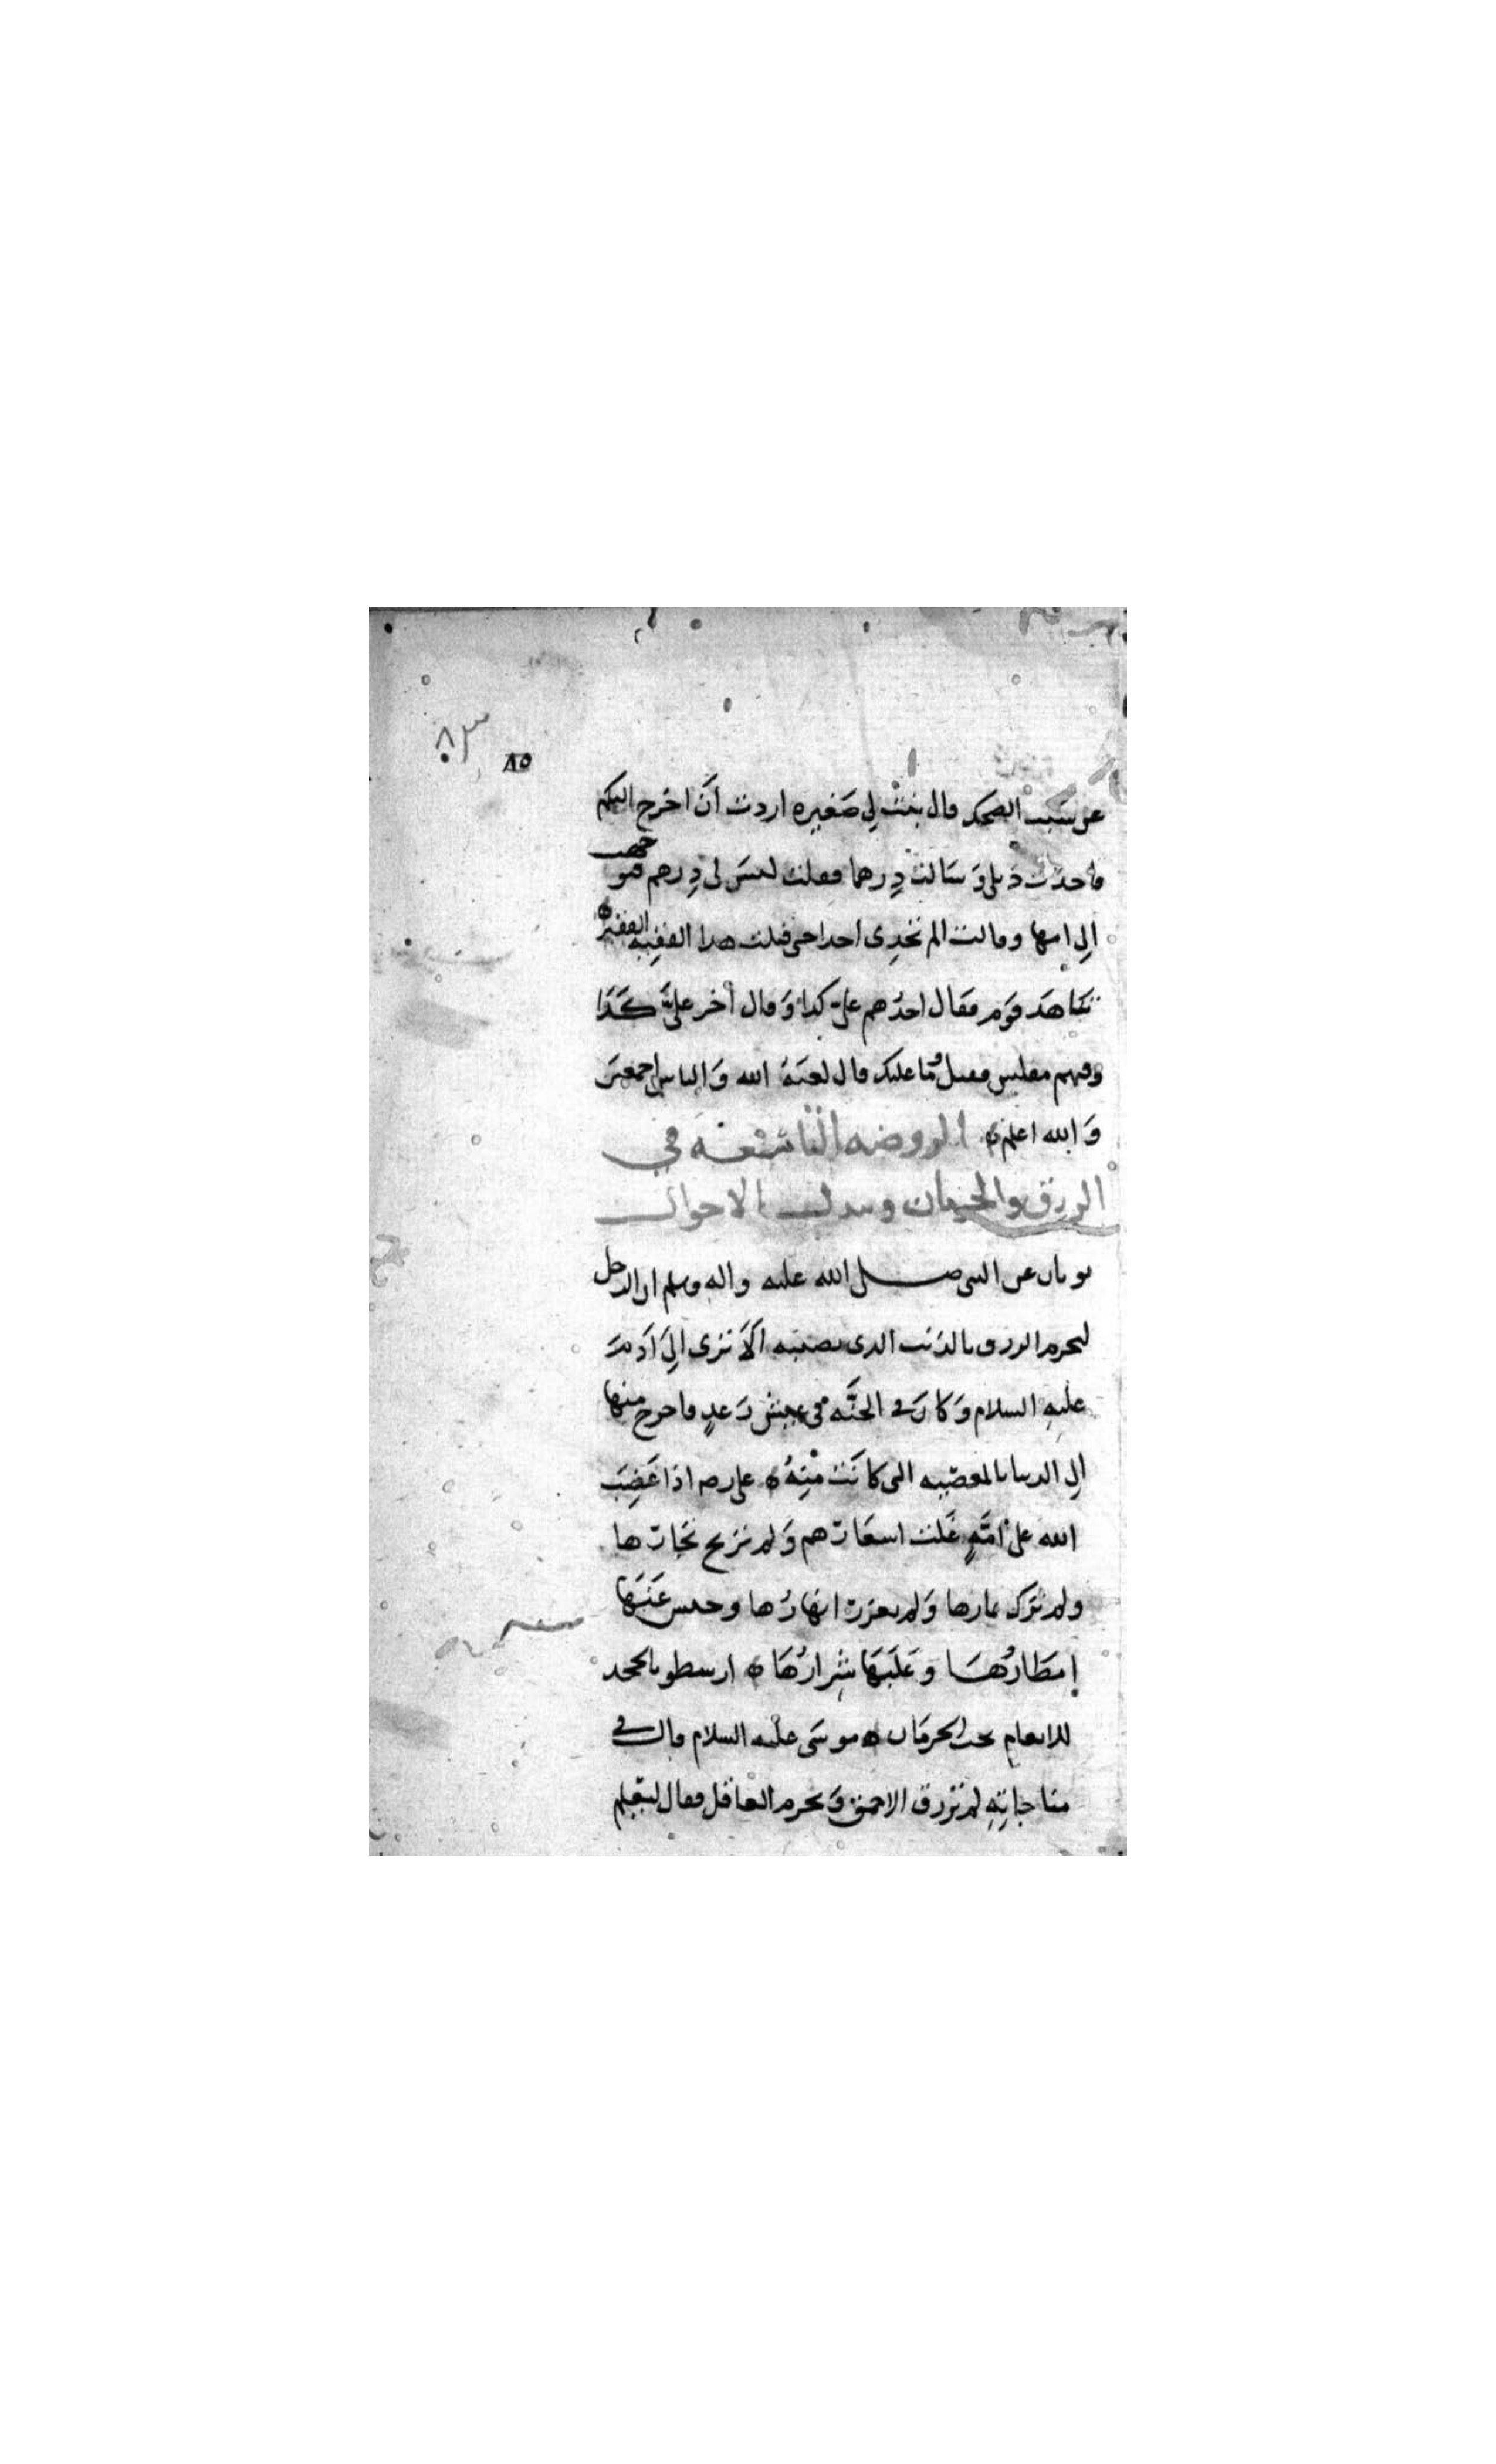 ٨٣
٨٥
عن سبب الضحك قال بنت لي صغيره اردت أن اخرج اليكم
فأخذت ذيلي وسالت دِرهما فقلت ليسَ لي دِرهم
إلى امها وقالت الم تجدِى احدا حتى قبلت هذا الفقيه الفقير
تناهَد قوم فقال احدُهم عليّ كذا وَقال آخر عليَّ كَذَا
وفيهم مفلس فقيل وما عليك قال لعنة الله وَالناس اجمعين
وَالله اعلم الروضه التاسعة في
الرزق والحرمان وتبدل الاحوال
ثوبان عن النبي صلى الله عليه واله وسلم ان الرجل
ليحرم الرزق بالذنب الذى يصيبه ألا ترى إلى آدم
عليه السلام وَكان في الجنَّه في عيش رَغدٍ فاخرج منها
إلى الدنيا بالمعصيه التى كانَت منهُ على رضه اذا غَضِبَ
الله على امَّةٍ غَلت اسعَارهم وَلم تربح تجارها
ولم تزك ثمارها وَلم تغزر انهارُها وحبس عَنهَا
امطَارُهَا وغلبَهَا شِرارُهَا ارسطو بالجحد
للانعام يجب الحرمَان موسَى عليه السلام قال في
مناجاتِهِ لم ترزق الاحمق وَتحرم العاقل فقال ليعلم